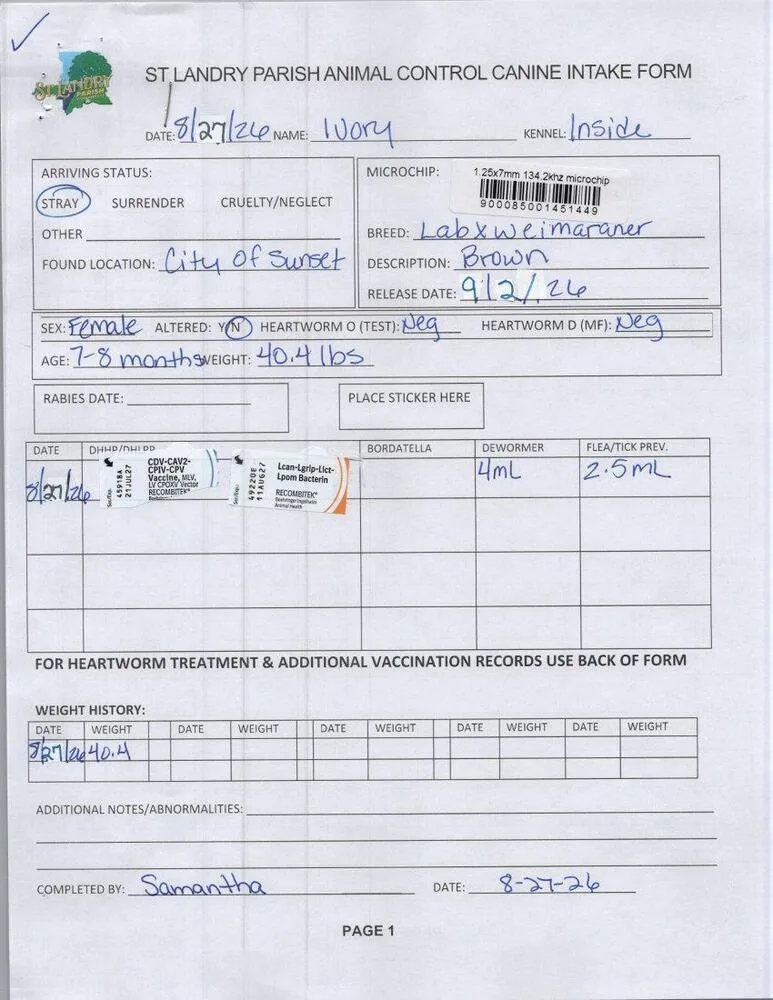 ST LANDRY
PARISH
ST LANDRY PARISH ANIMAL CONTROL CANINE INTAKE FORM
DATE: 8/27/26 NAME: Ivory KENNEL: Inside
ARRIVING STATUS:
STRAY SURRENDER CRUELTY/NEGLECT
OTHER
FOUND LOCATION: City Of Sunset
MICROCHIP: 1.25x7mm 134.2khz microchip
900085001451449
BREED: Lab x Weimaraner
DESCRIPTION: Brown
RELEASE DATE: 9/2/26
SEX: Female ALTERED: Y/N HEARTWORM O (TEST): Neg HEARTWORM D (MF): Neg
AGE: 7-8 months WEIGHT: 40.4 lbs
RABIES DATE:
PLACE STICKER HERE
DATE DHHP/DHLPP BORDATELLA DEWORMER FLEA/TICK PREV.
8/27/26
45918A
21JUL27
CDV-CAV2-
CPIV-CPV
Vaccine, MLV,
LV CPOXV Vector
RECOMBITEK®
49220E
11AUG27
Lcan-Lgrip-Lict-
Lpom Bacterin
RECOMBITEK®
Boehringer Ingelheim
Animal Health
4mL 2.5mL
FOR HEARTWORM TREATMENT & ADDITIONAL VACCINATION RECORDS USE BACK OF FORM
WEIGHT HISTORY:
DATE WEIGHT DATE WEIGHT DATE WEIGHT DATE WEIGHT DATE WEIGHT
8/27/26 40.4
ADDITIONAL NOTES/ABNORMALITIES:
COMPLETED BY: Samantha DATE: 8-27-26
PAGE 1